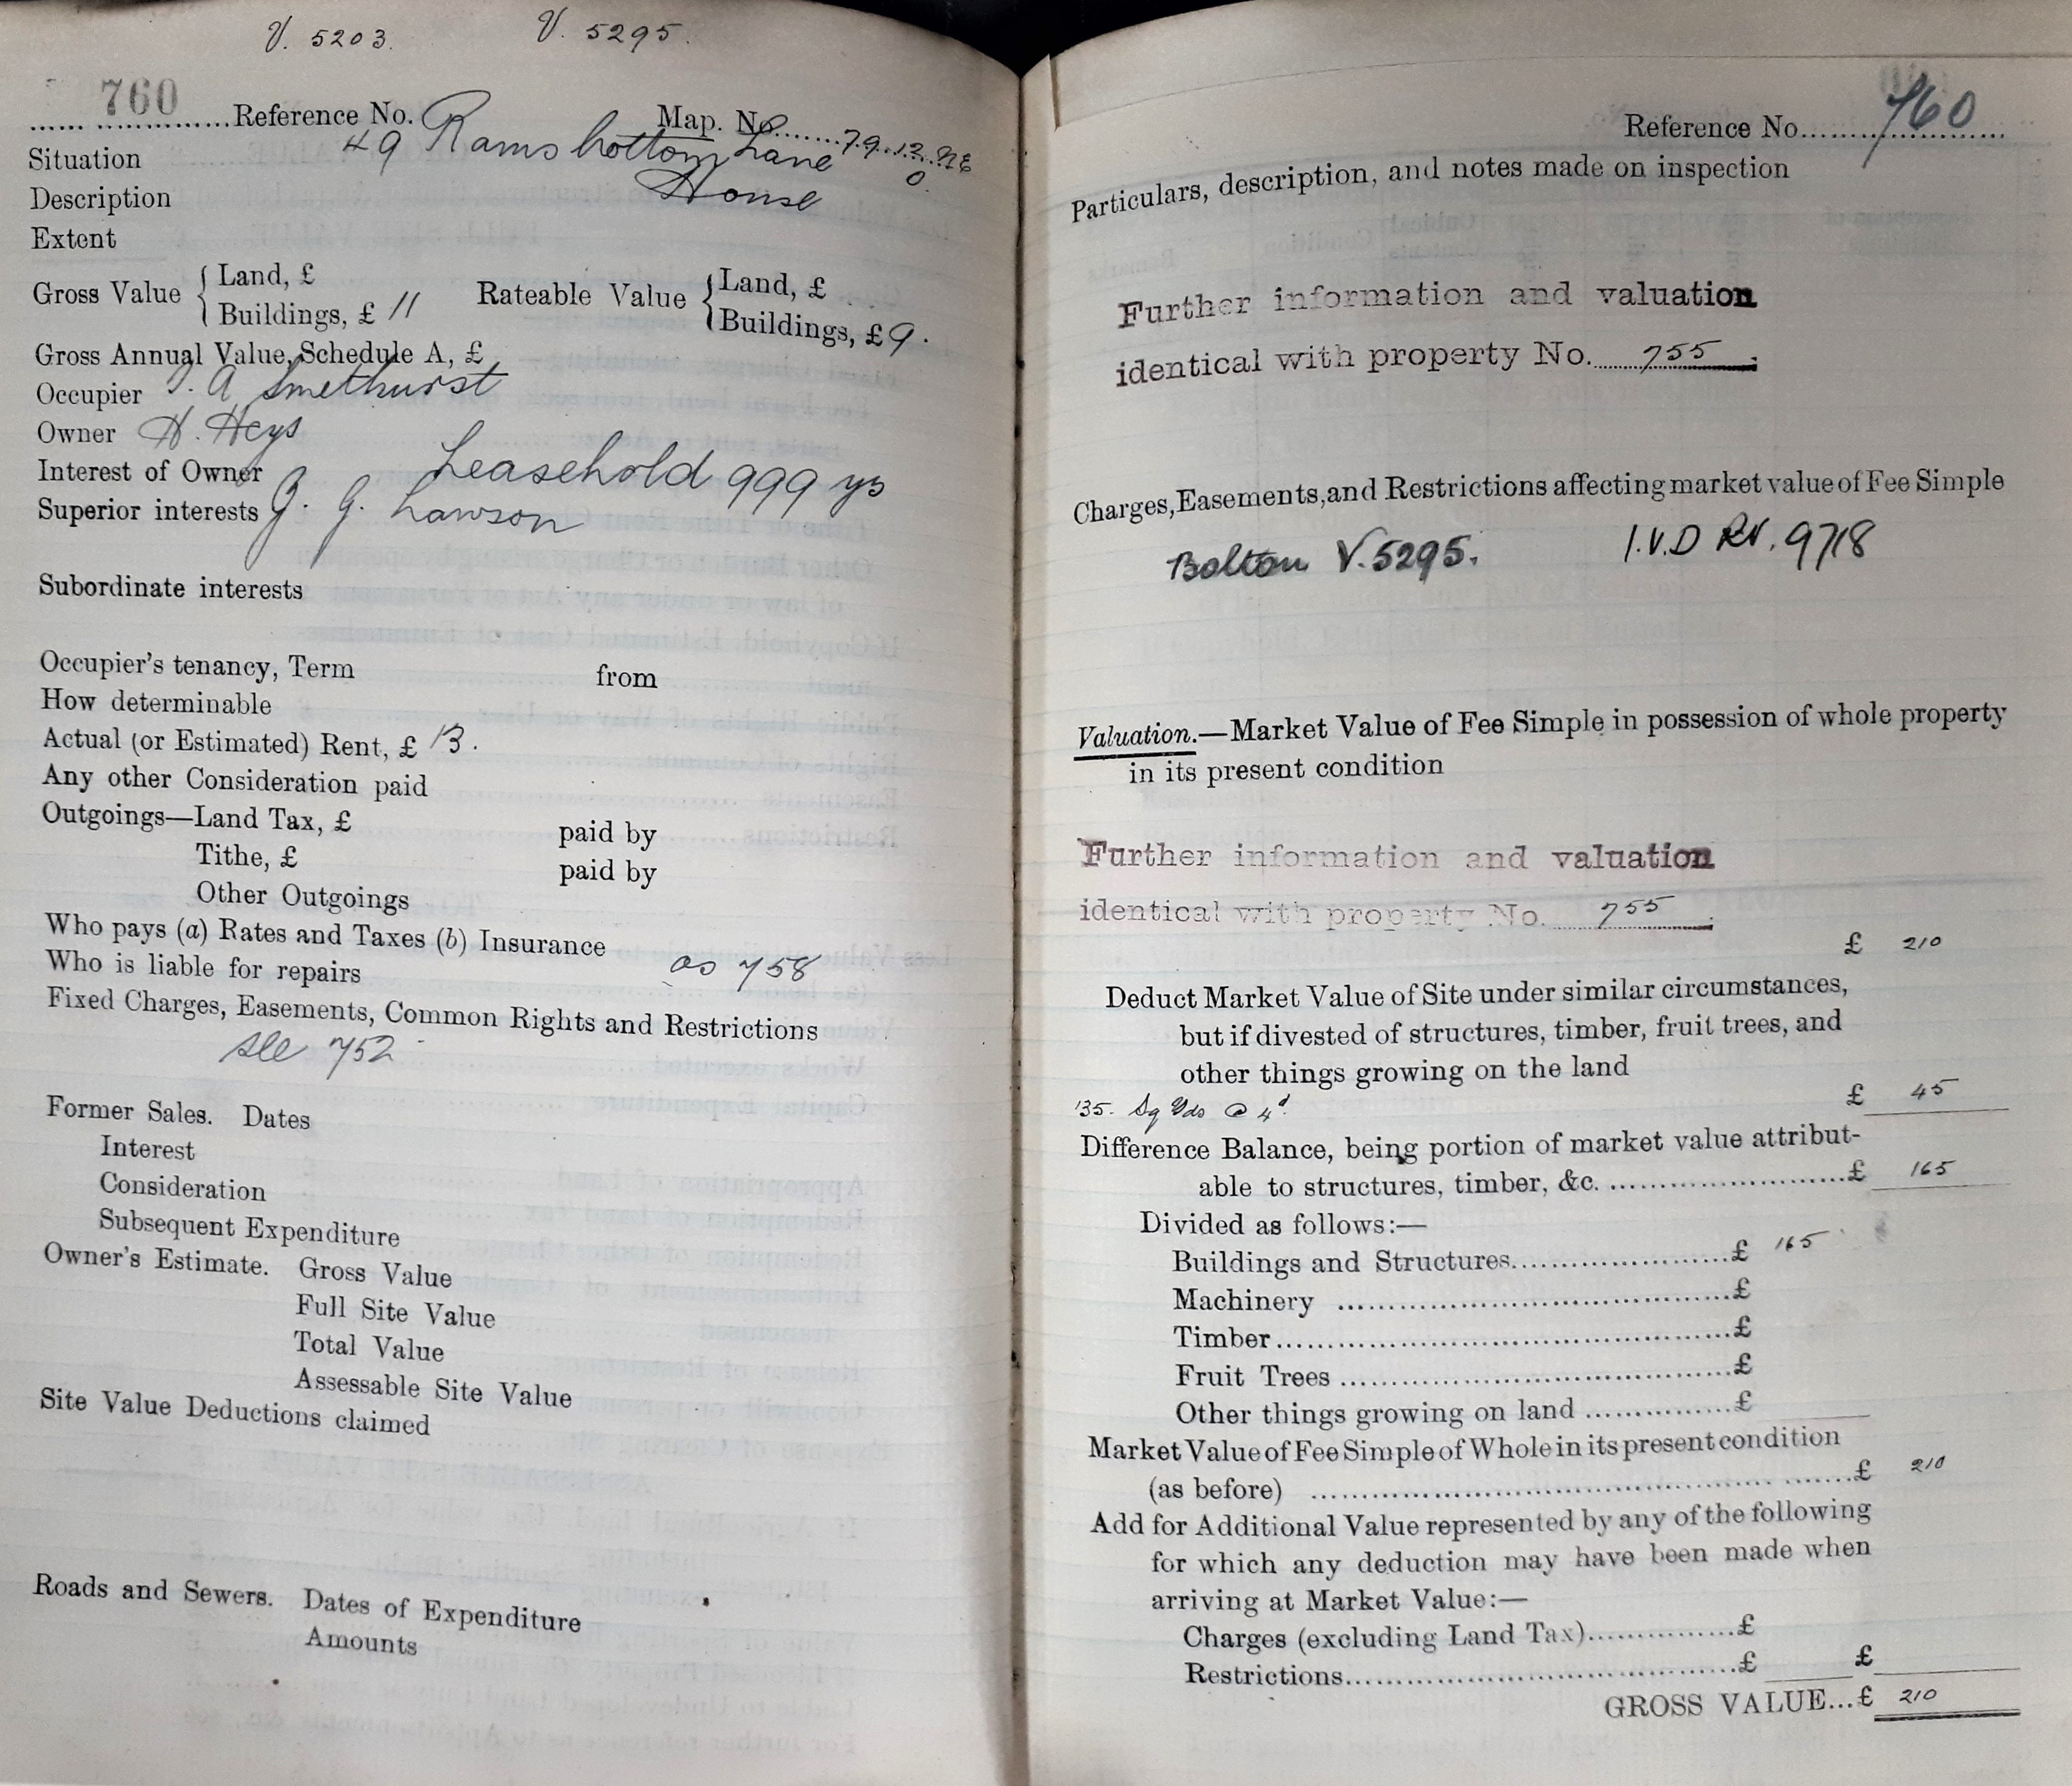 V. 5203. V. 5295.
760 Reference No. Map. No. 79.12.NE
Situation 49 Ramsbottom Lane 0.
Description House
Extent
Gross Value { Land, £
Buildings, £ 11
Rateable Value { Land, £
Buildings, £ 9.
Gross Annual Value, Schedule A, £
Occupier A Smethurst
Owner H. Heys
Interest of Owner Leasehold 999 ys
Superior interests J. G. Lawson
Subordinate interests
Occupier's tenancy, Term from
How determinable
Actual (or Estimated) Rent, £ 13.
Any other Consideration paid
Outgoings—Land Tax, £ paid by
Tithe, £ paid by
Other Outgoings
Who pays (a) Rates and Taxes (b) Insurance
Who is liable for repairs as 758
Fixed Charges, Easements, Common Rights and Restrictions
see 752
Former Sales. Dates
Interest
Consideration
Subsequent Expenditure
Owner's Estimate. Gross Value
Full Site Value
Total Value
Assessable Site Value
Site Value Deductions claimed
Roads and Sewers. Dates of Expenditure
Amounts
Reference No. 760
Particulars, description, and notes made on inspection
Further information and valuation
identical with property No. 755.
Charges, Easements, and Restrictions affecting market value of Fee Simple
Bolton V.5295. I.V.D RV. 9718
Valuation.—Market Value of Fee Simple in possession of whole property
in its present condition
Further information and valuation
identical with property No. 755.
£ 210
Deduct Market Value of Site under similar circumstances,
but if divested of structures, timber, fruit trees, and
other things growing on the land
135. Sq Yds @ 4d. £ 45
Difference Balance, being portion of market value attribut-
able to structures, timber, &c. £ 165
Divided as follows:—
Buildings and Structures £ 165
Machinery £
Timber £
Fruit Trees £
Other things growing on land £
Market Value of Fee Simple of Whole in its present condition
(as before) £ 210
Add for Additional Value represented by any of the following
for which any deduction may have been made when
arriving at Market Value:—
Charges (excluding Land Tax) £
Restrictions £ £
GROSS VALUE...£ 210